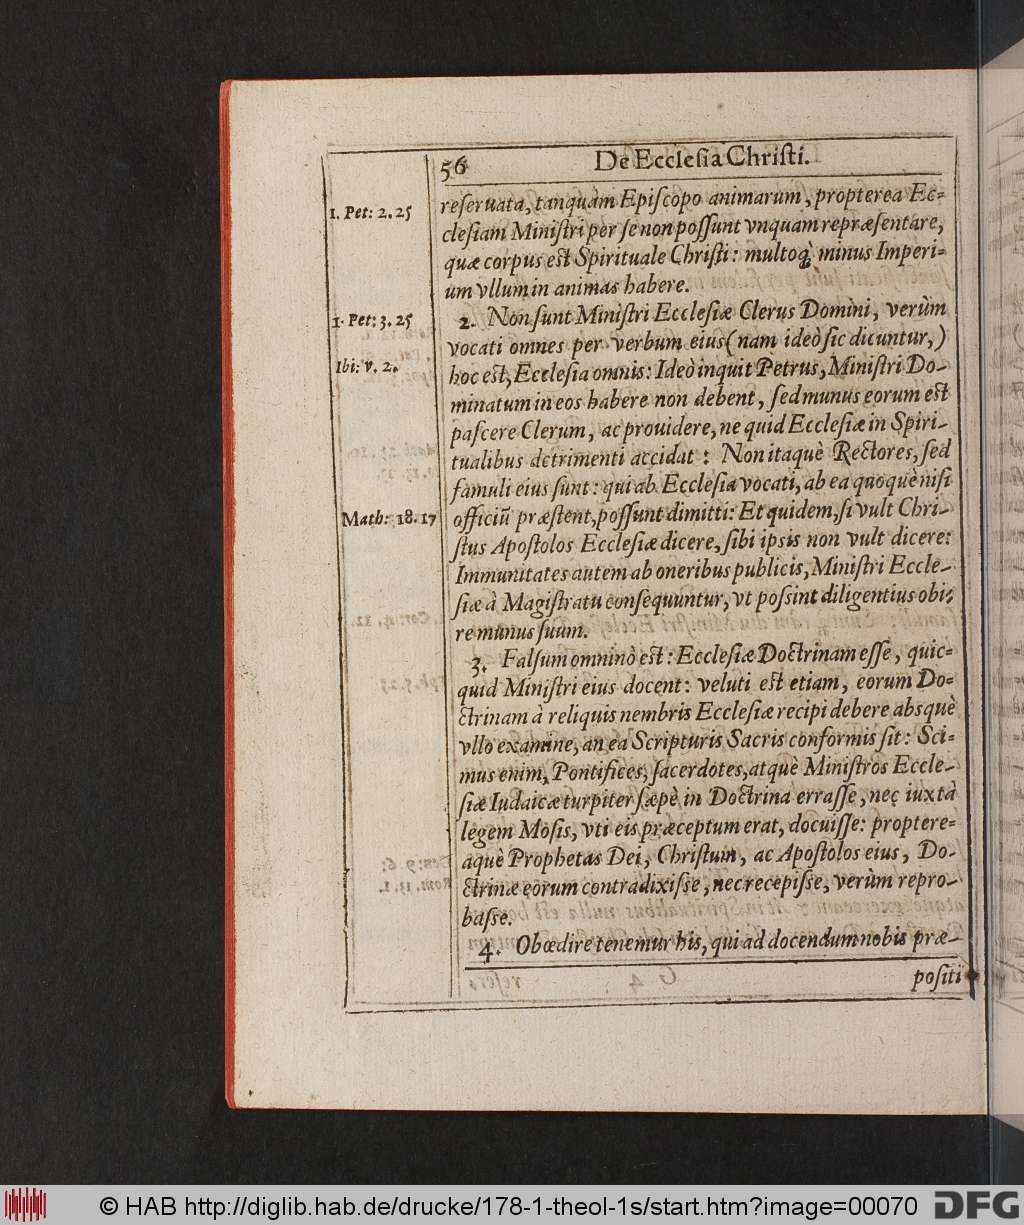 56 De Eccleſia Chriſti.
1. Pet: 2. 25
reſeruata, tanquàm Epiſcopo animarum, propterea Ec-
cleſiam Miniſtri per ſe non poſſunt vnquam repræſentare,
quæ corpus est Spirituale Chriſti: multoq́; minus Imperi-
um vllum in animas habere.
1. Pet: 3. 25
2. Non ſunt Miniſtri Eccleſiæ Clerus Domini, verùm
vocati omnes per verbum eius (nam ideò ſic dicuntur,)
Ibi: v. 2.
hoc eſt, Eccleſia omnis: Ideò inquit Petrus, Miniſtri Do-
minatum in eos habere non debent, ſed munus eorum eſt
paſcere Clerum, ac prouidere, ne quid Eccleſiæ in Spiri-
tualibus detrimenti accidat: Non itaquè Rectores, ſed
famuli eius ſunt: qui ab Eccleſia vocati, ab ea quoquè niſi
Math: 18. 17
officiũ præſtent, poſſunt dimitti: Et quidem, ſi vult Chri-
ſtus Apoſtolos Eccleſiæ dicere, ſibi ipsis non vult dicere:
Immunitates autem ab oneribus publicis, Miniſtri Eccle-
ſiæ à Magiſtratu conſequuntur, vt poſsint diligentius obi-
re munus ſuum.
3. Falſum omninò eſt: Eccleſiæ Doctrinam eſſe, quic-
quid Miniſtri eius docent: veluti est etiam, eorum Do-
ctrinam à reliquis nembris Eccleſiæ recipi debere absquè
vllo examine, an ea Scripturis Sacris conformis ſit: Sci-
mus enim, Pontifices, ſacerdotes, atquè Miniſtros Eccle-
ſiæ Iudaicæ turpiter ſæpè in Doctrina erraſſe, nec iuxtà
legem Moſis, vti eis præceptum erat, docuiſſe: proptere-
aquè Prophetas Dei, Chriſtum, ac Apoſtolos eius, Do-
ctrinæ eorum contradixiſſe, nec recepiſſe, verùm repro-
baſſe.
4. Obœdire tenemur his, qui ad docendum nobis præ-
poſiti
© HAB http://diglib.hab.de/drucke/178-1-theol-1s/start.htm?image=00070
DFG